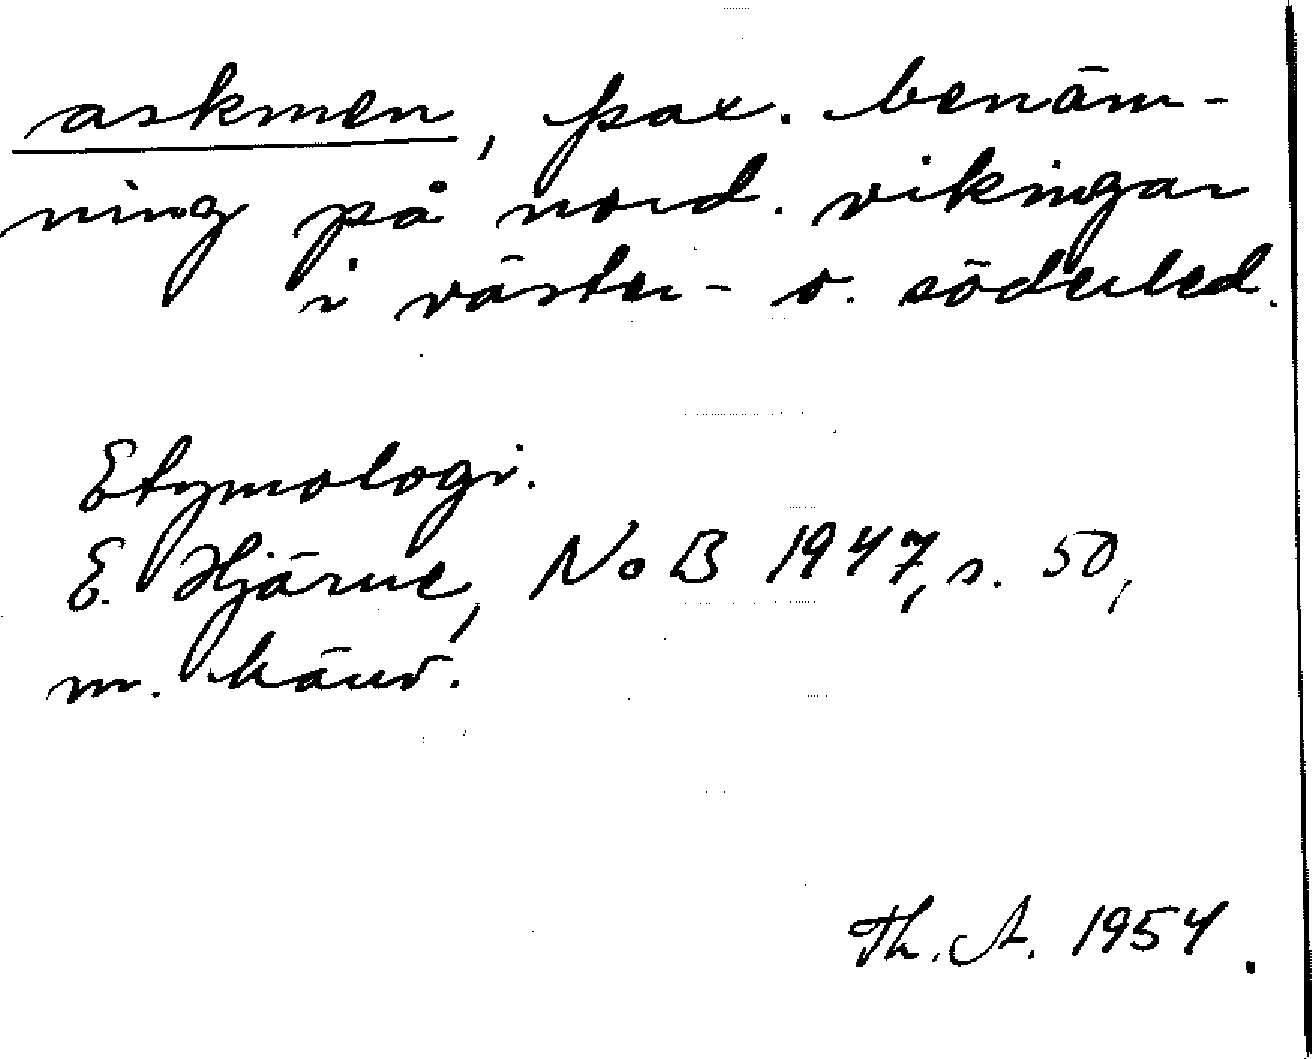 askmen, sax. benäm-
ning på nord. vikingar
i väster- o. söderled.
Etymologi.
E. Hjärne, NoB 1947, s. 50,
m. hänv.
Th. A. 1954.